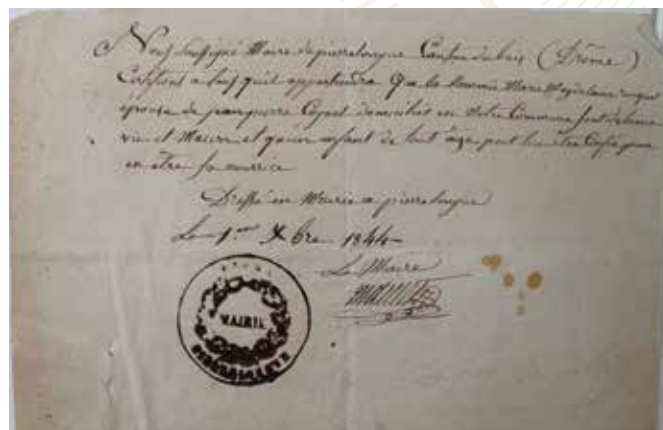 Nous soussigné Maire de pierrelongue Canton du buis (Drôme)
Certifions a tous quil appartiendra Que la Nommée Marie Magdelaine
épouse de jean pierre domicilié en Notre Commune sont de bonne
vie et Mœurs et qu'un enfant de tout age peut lui être Confié pour
en être la nourrice
Dressé en Mairie a pierrelongue
Le 1er Xbre 1844
Le Maire
MAIRIE